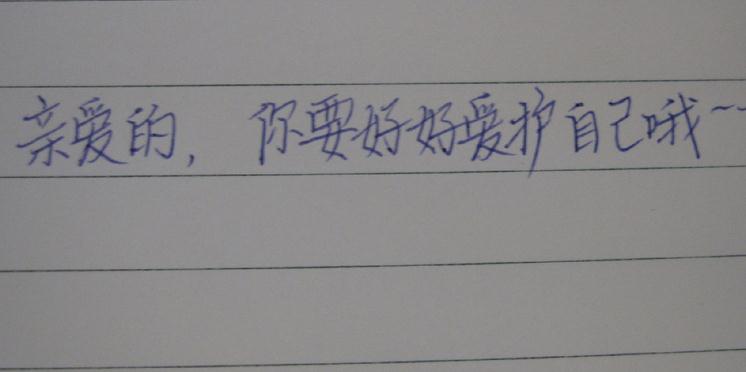 亲爱的，你要好好爱护自己哦~~